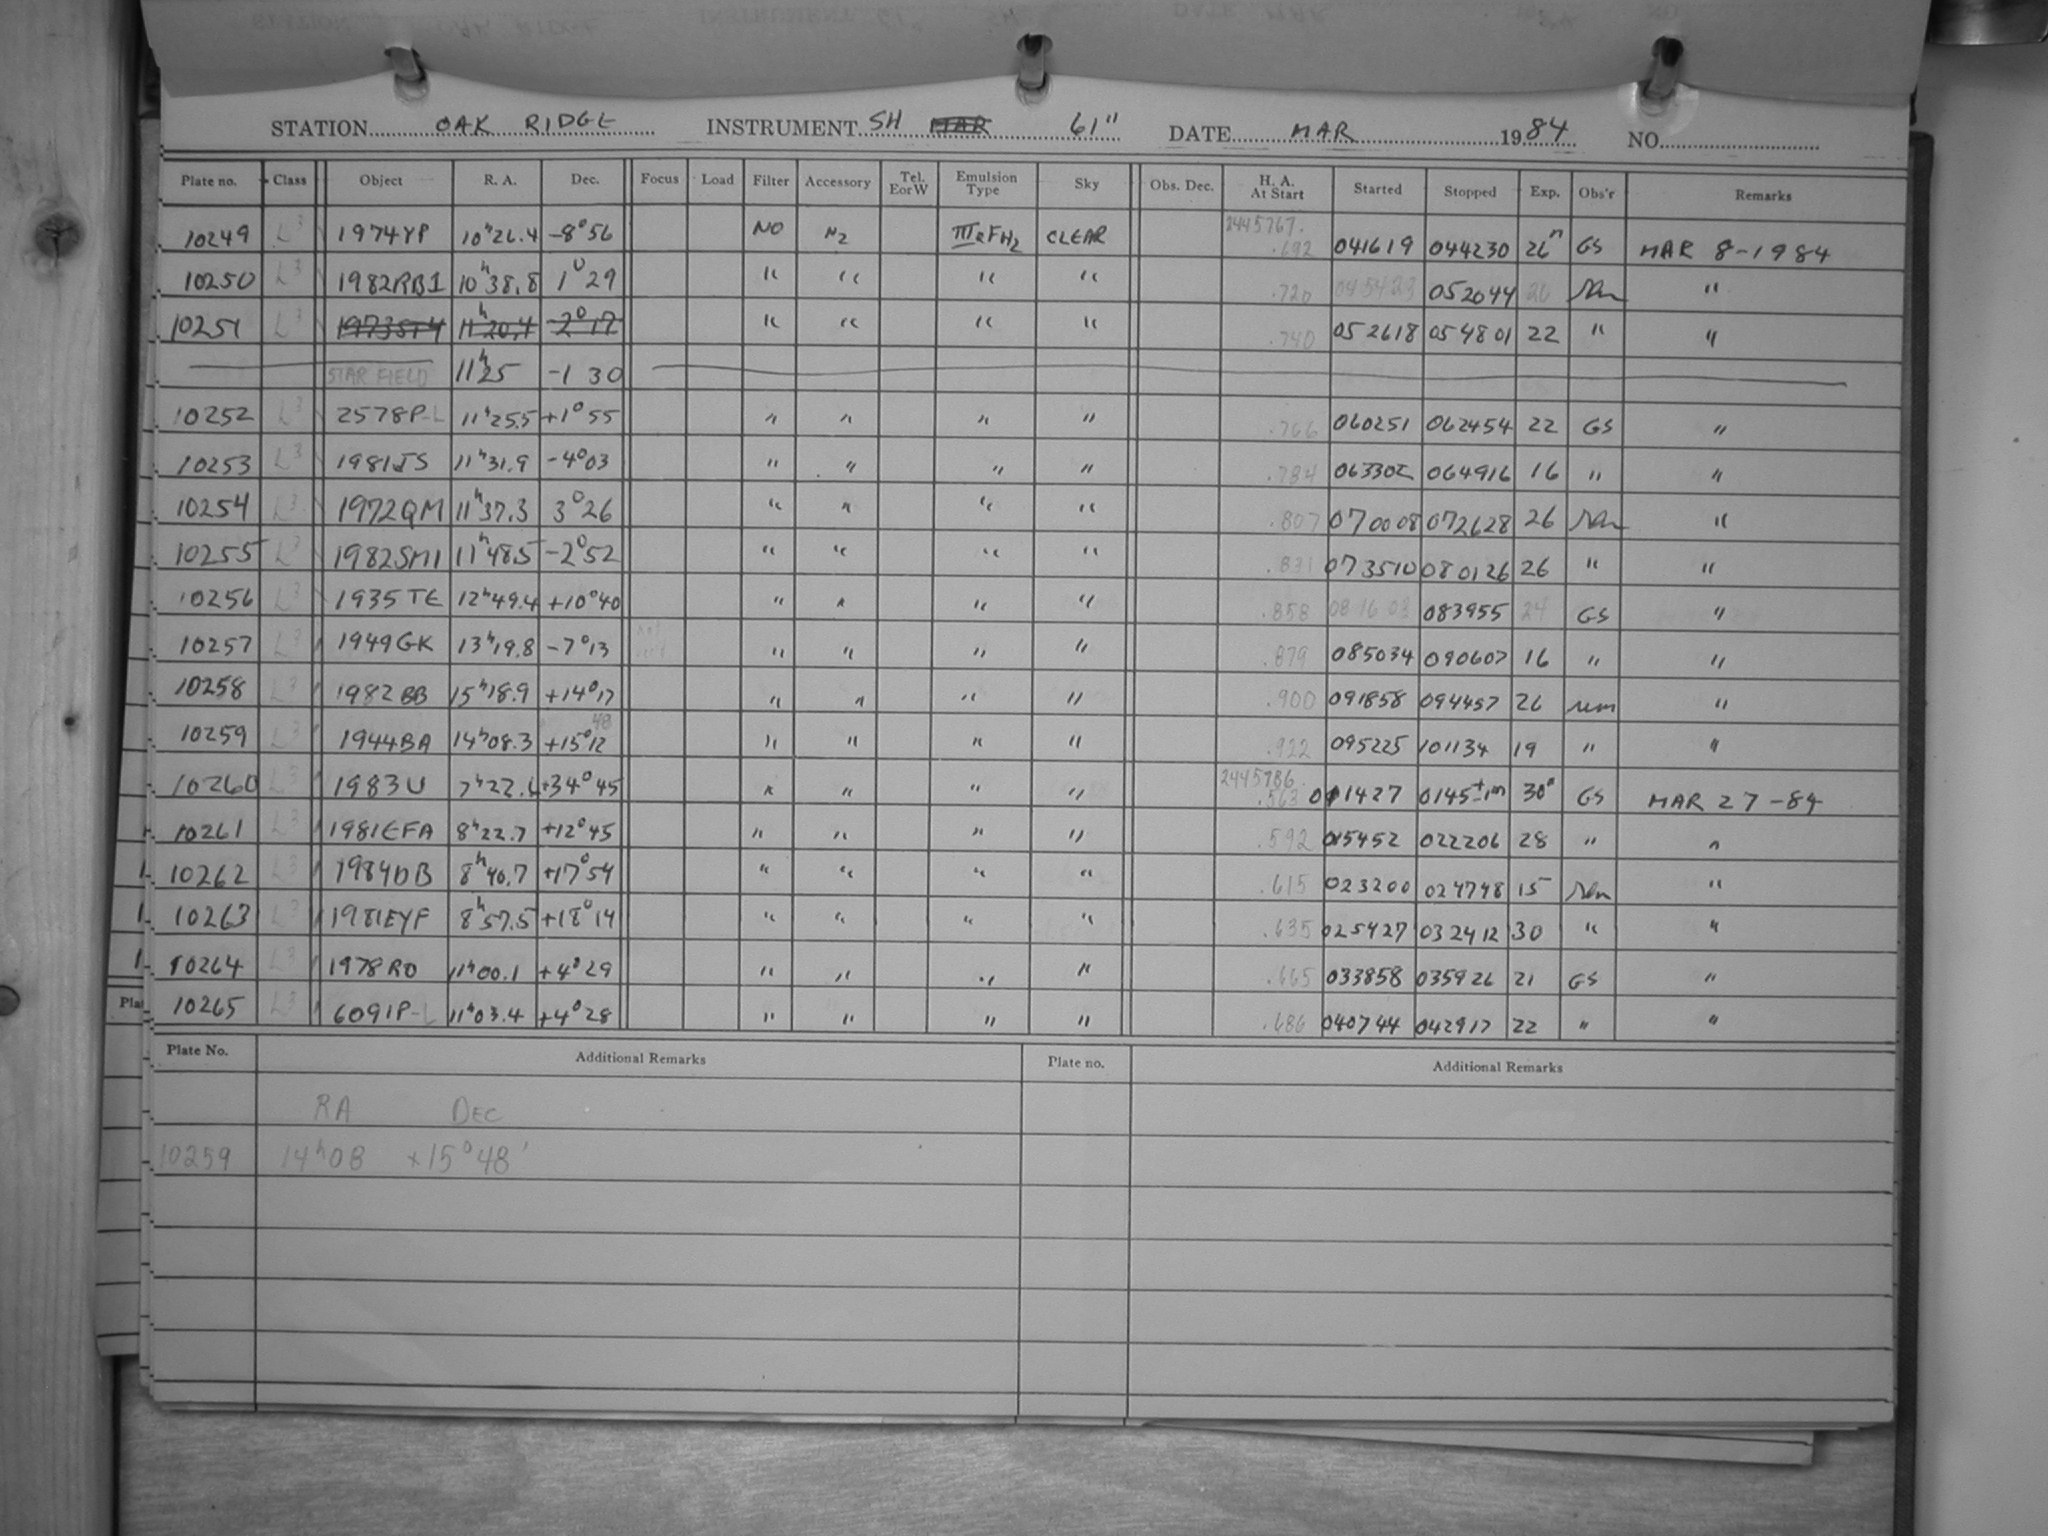 STATION OAK RIDGE INSTRUMENT SH 61" DATE MAR 1984 NO.
Plate no. Class Object R. A. Dec. Focus Load Filter Accessory Tel. E or W Emulsion Type Sky Obs. Dec. H. A. At Start Started Stopped Exp. Obs'r Remarks
2445767.
10249 L3 1974YP 10h26.4 -8°56 NO N2 IIIaFH2 CLEAR .692 041619 044230 26m GS MAR 8-1984
10250 L3 1982RB1 10h38.8 1°29 " " " " .720 045423 052044 26 "
10251 L3 1973ST4 11h20.4 -2°17 " " " " .740 052618 054801 22 " "
STAR FIELD 11h25 -1 30
10252 L3 2578P-L 11h25.5 +1°55 " " " " .766 060251 062454 22 GS "
10253 L3 1981JS 11h31.9 -4°03 " " " " .784 063302 064916 16 " "
10254 L3 1972QM 11h37.3 3°26 " " " " .807 070008 072628 26 "
10255 L3 1982SM1 11h48.5 -2°52 " " " " .831 073510 080126 26 " "
10256 L3 1935TE 12h49.4 +10°40 " " " " .858 081603 083955 24 GS "
10257 L3 1949GK 13h19.8 -7°13 " " " " .879 085034 090607 16 " "
10258 L3 1982BB 15h18.9 +14°17 " " " " .900 091858 094457 26 "
48
10259 L3 1944BA 14h08.3 +15°12 " " " " .922 095225 101134 19 " "
2445786.
10260 L3 1983U 7h22.6 +34°45 " " " " .563 011427 0145±1m 30m GS MAR 27-84
10261 L3 1981EFA 8h22.7 +12°45 " " " " .592 015452 022206 28 " "
10262 L3 1984DB 8h40.7 +17°54 " " " " .615 023200 024748 15 "
10263 L3 1981EYF 8h57.5 +18°14 " " " " .635 025427 032412 30 " "
10264 L3 1978RO 11h00.1 +4°29 " " " " .665 033858 035926 21 GS "
10265 L3 6091P-L 11h03.4 +4°28 " " " " .686 040744 042917 22 " "
Plate No. Additional Remarks Plate no. Additional Remarks
RA DEC
10259 14h08 +15°48'